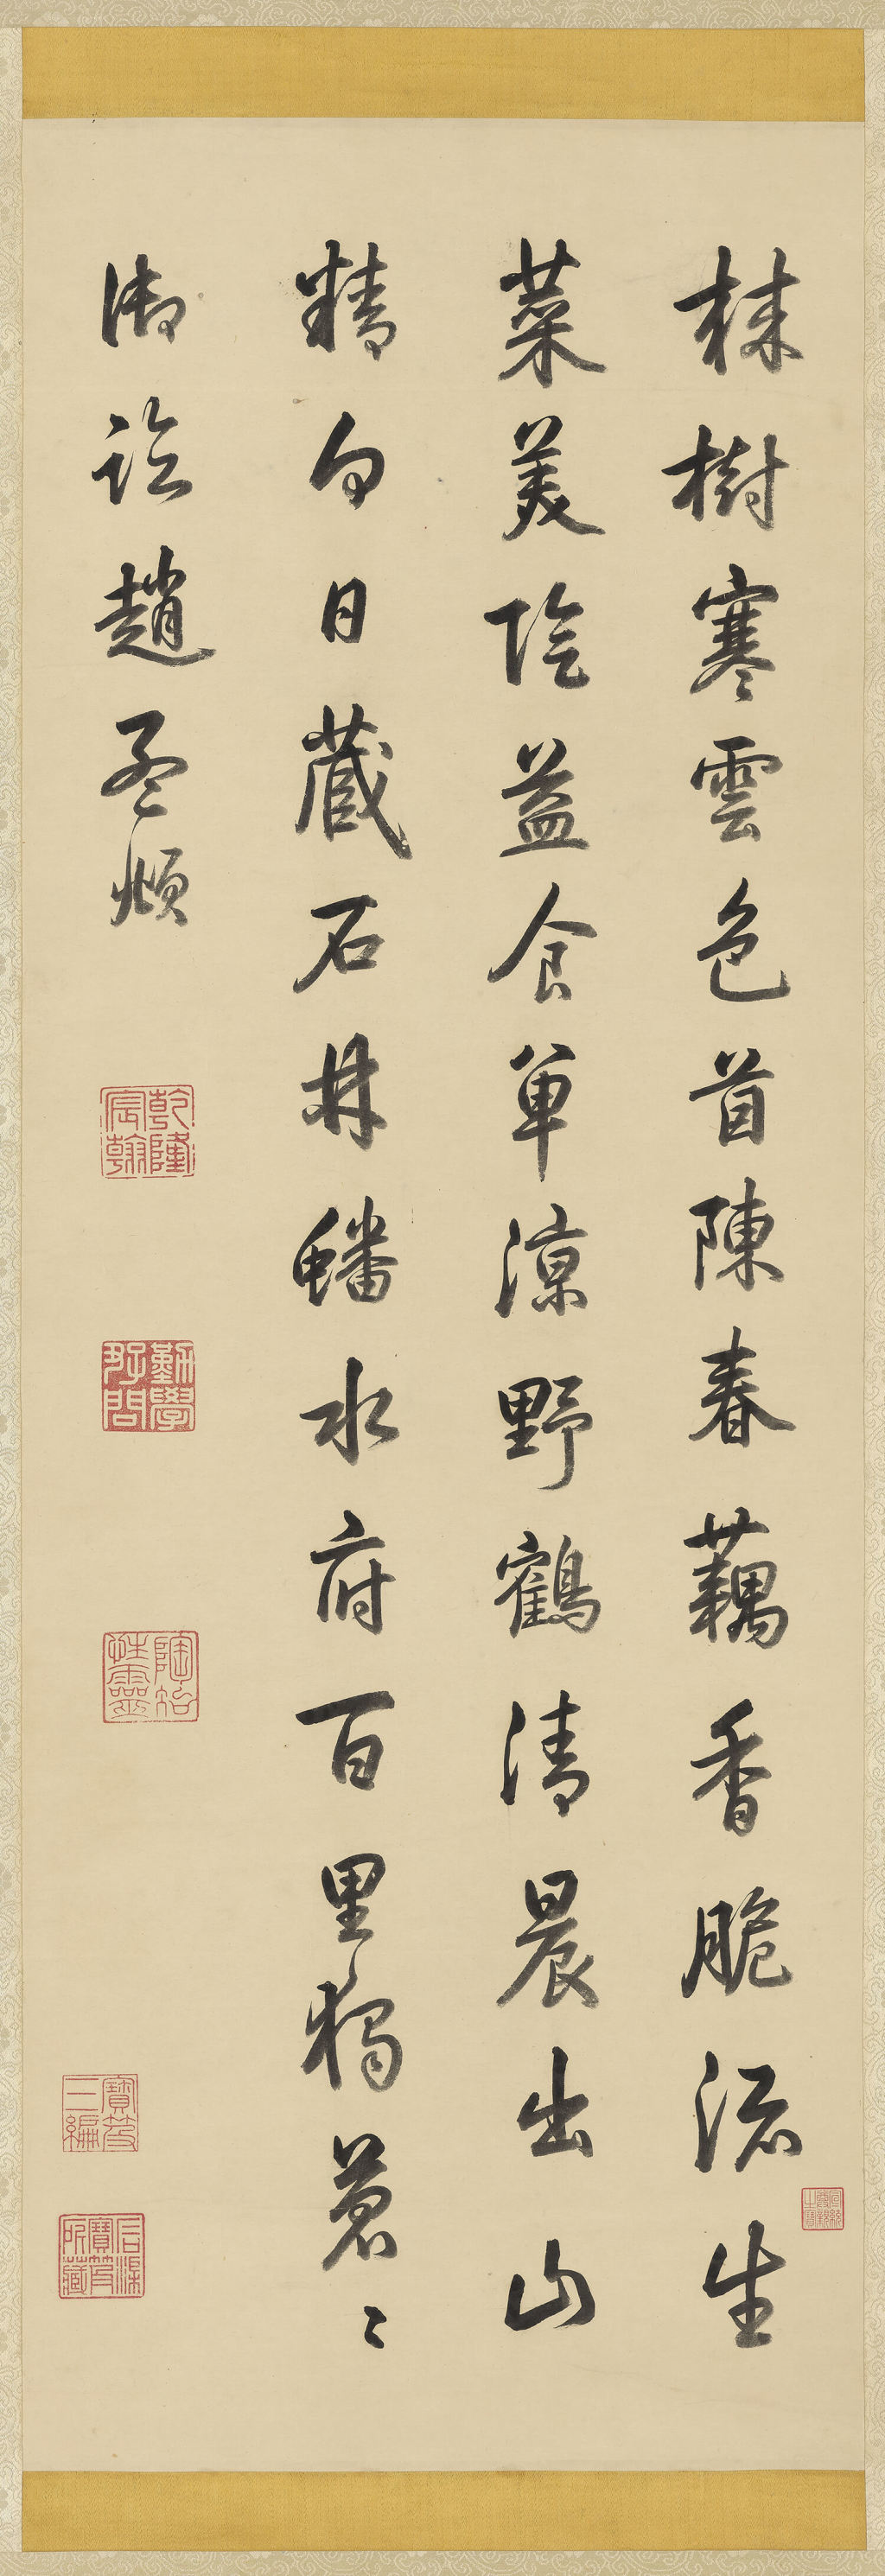 栜樹寒雲色茵陳春藕香脆添生
菜美陰益食單涼野鶴清晨出山
精白日藏石林蟠水府百里獨蒼〻
御臨趙孟頫
乾隆宸翰
勤學好問
陶冶性靈
寶笈三編
石渠寶笈所藏